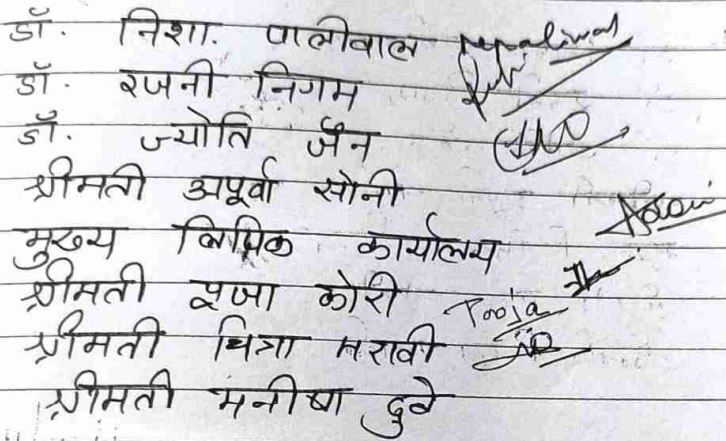 डॉ. निशा. पालीवाल
डॉ. रजनी निगम
डॉ. ज्योति जैन
श्रीमती अपूर्वा सोनी
मुख्य लिपिक कार्यालय
श्रीमती पूजा कोरी Pooja
श्रीमती चित्रा मरावी
श्रीमती मनीषा दुबे